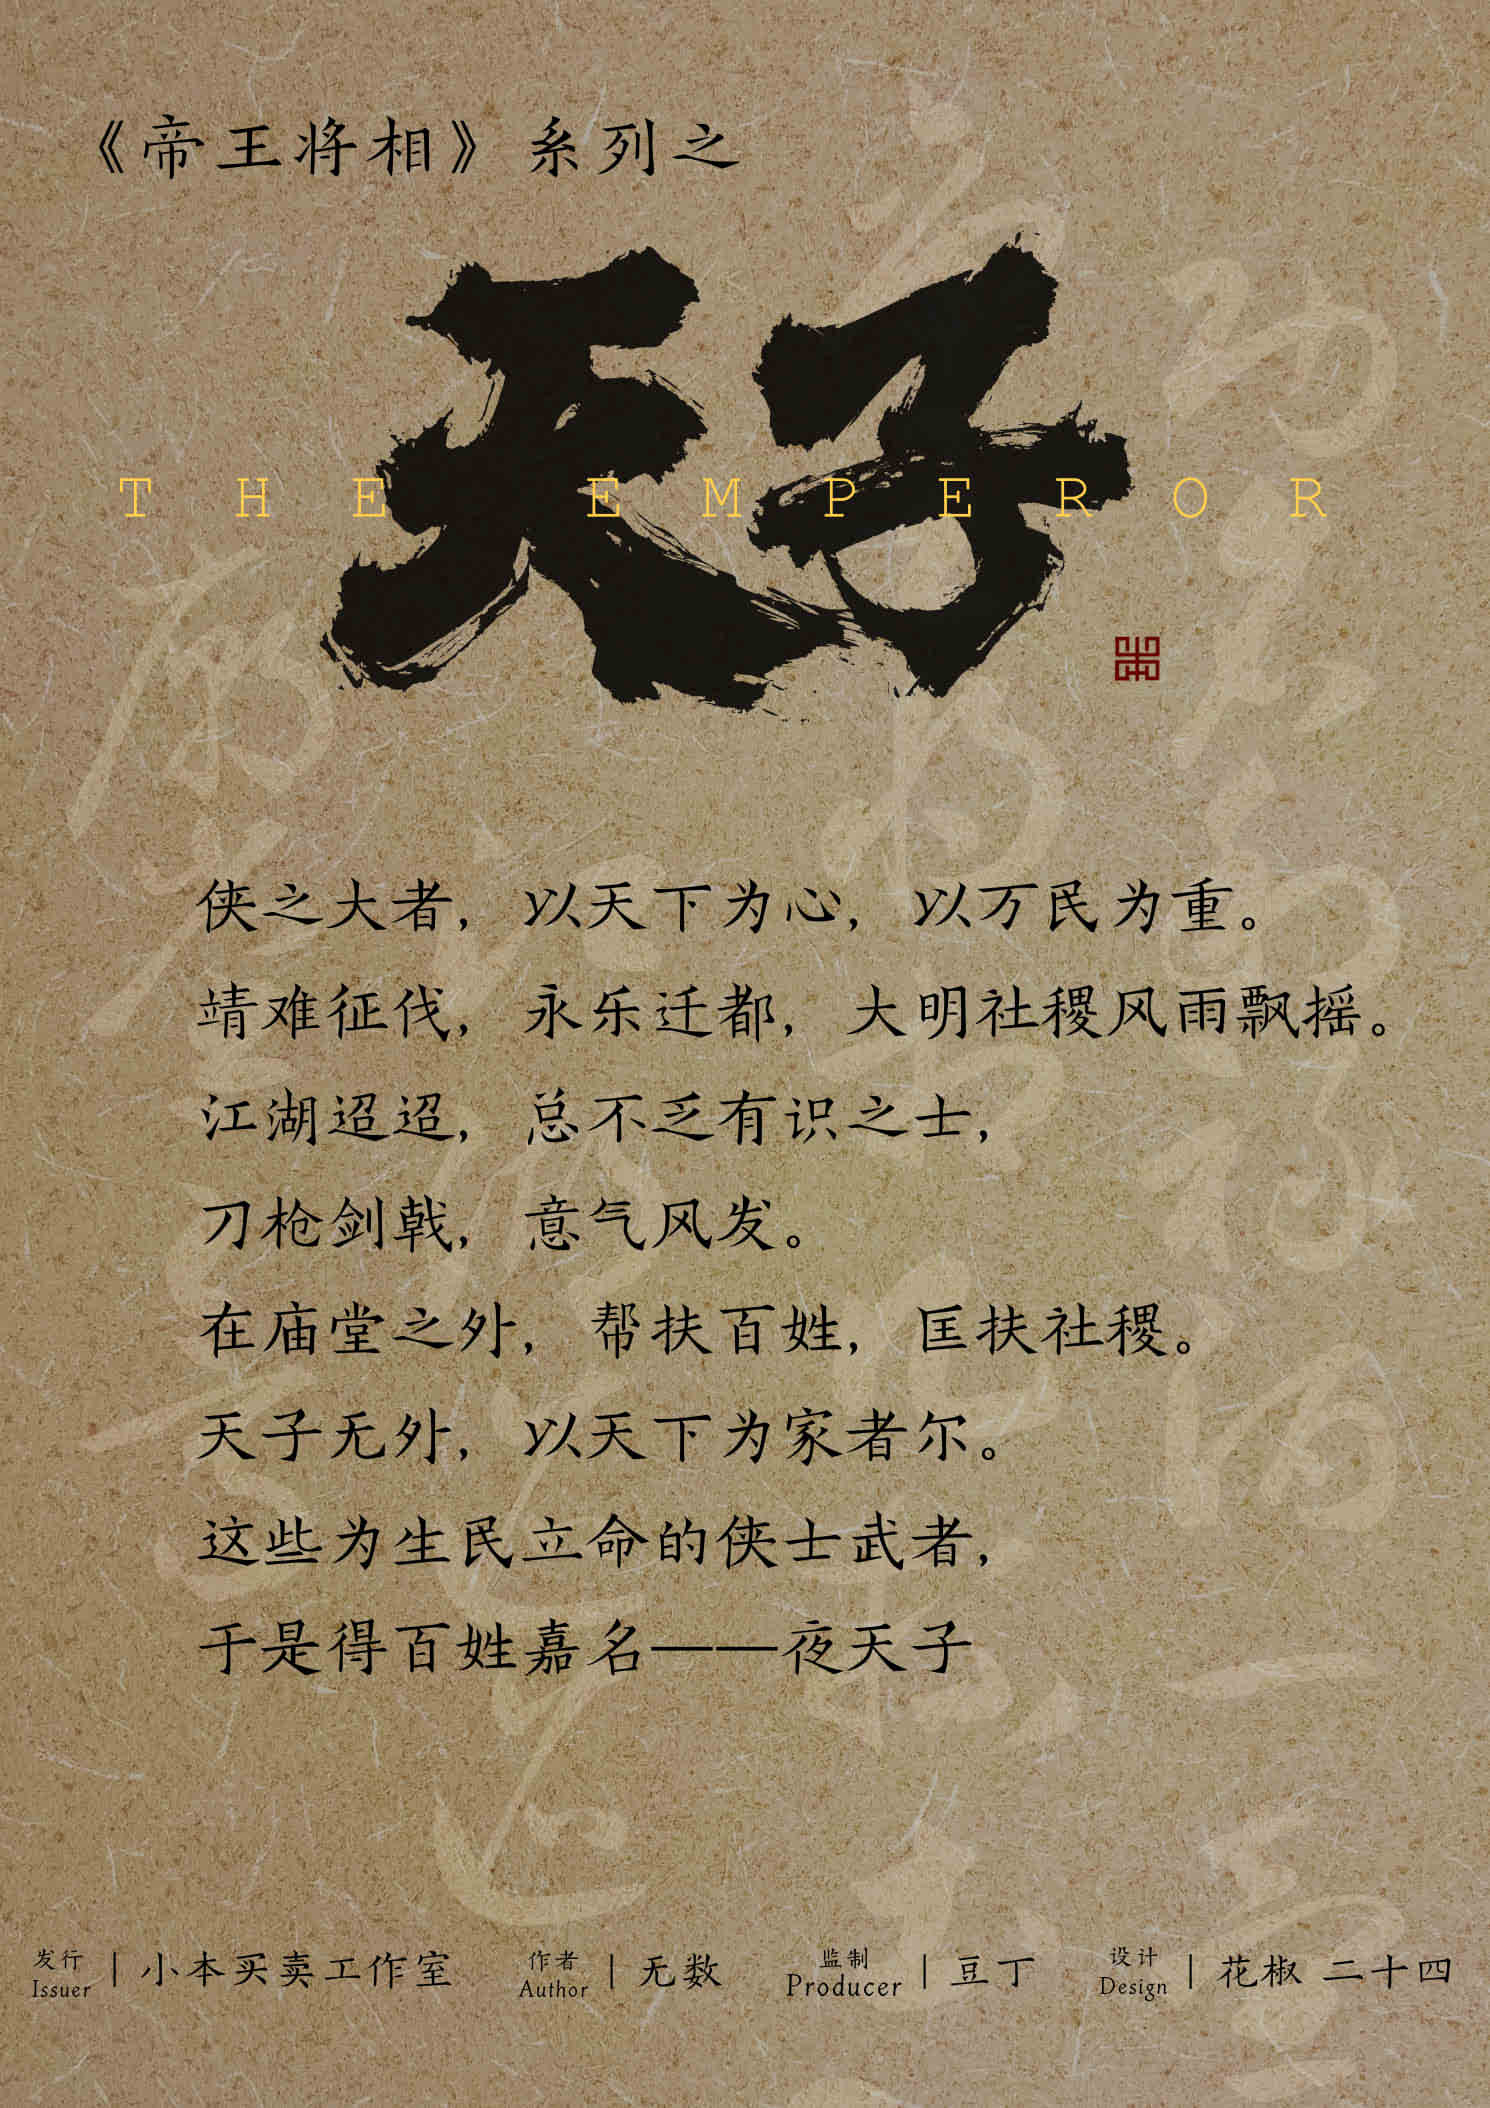 《帝王将相》系列之
天子
THE EMPEROR
侠之大者，以天下为心，以万民为重。
靖难征伐，永乐迁都，大明社稷风雨飘摇。
江湖迢迢，总不乏有识之士，
刀枪剑戟，意气风发。
在庙堂之外，帮扶百姓，匡扶社稷。
天子无外，以天下为家者尔。
这些为生民立命的侠士武者，
于是得百姓嘉名——夜天子
发行 | 小本买卖工作室 作者 | 无数 监制 | 豆丁 设计 | 花椒 二十四
Issuer Author Producer Design